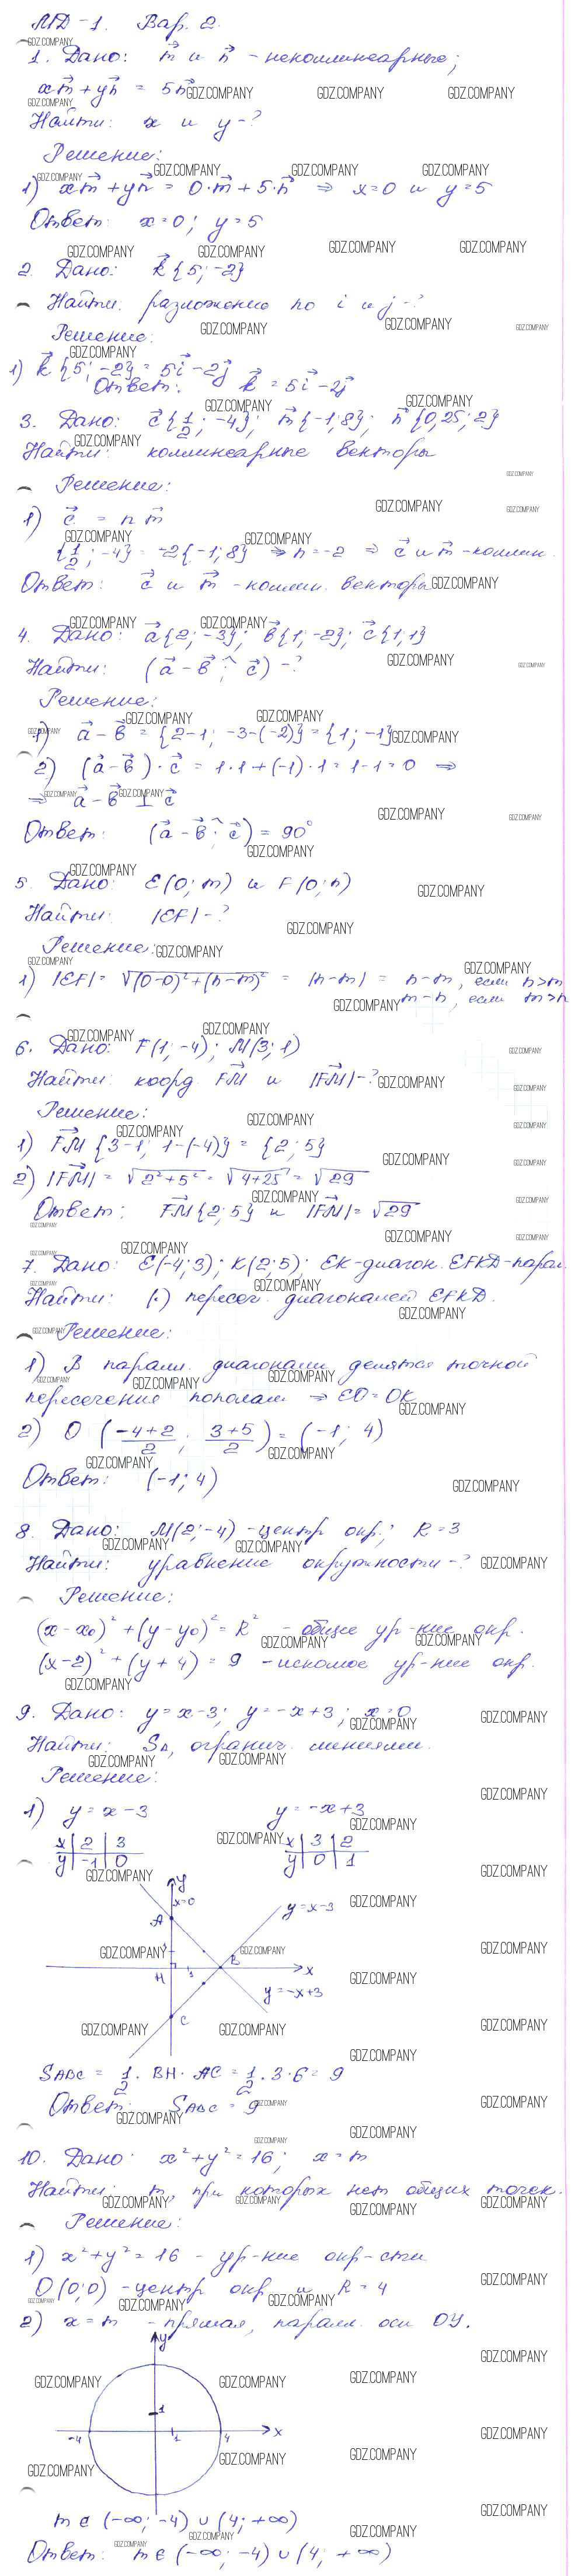 МД-1. Вар. 2.
1. Дано: m и n - неколлинеарные;
xm + yn = 5n
Найти: x и y - ?
Решение:
1) xm + yn = 0·m + 5·n ⇒ x=0 и y=5
Ответ: x=0; y=5
2. Дано: k{5; -2}
Найти: разложение по i и j - ?
Решение:
1) k{5; -2} = 5i - 2j
Ответ: k = 5i - 2j
3. Дано: c{1/2; -4}; m{-1; 8}; n{0,25; 2}
Найти: коллинеарные векторы
Решение:
1) c = n m
{1/2; -4} = -2{-1; 8} ⇒ n = -2 ⇒ c и m - коллин.
Ответ: c и m - коллин. векторы
4. Дано: a{2; -3}; b{1; -2}; c{1; 1}
Найти: (a - b ^ c) - ?
Решение:
1) a - b = {2-1; -3-(-2)} = {1; -1}
2) (a - b) · c = 1·1 + (-1)·1 = 1-1 = 0 ⇒
⇒ a - b ⊥ c
Ответ: (a - b ^ c) = 90°
5. Дано: E(0; m) и F(0; n)
Найти: |EF| - ?
Решение:
1) |EF| = √(0-0)² + (n-m)² = |n-m| = n-m, если n>m
m-n, если m>n
6. Дано: F(1; -4); M(3; 1)
Найти: коорд. FM и |FM| - ?
Решение:
1) FM {3-1; 1-(-4)} = {2; 5}
2) |FM| = √2²+5² = √4+25 = √29
Ответ: FM{2; 5} и |FM| = √29
7. Дано: E(-4; 3); K(2; 5); EK-диагон. EFKD-парал.
Найти: (·) пересеч. диагоналей EFKD.
Решение:
1) В паралл. диагонали делятся точкой
пересечения пополам ⇒ EO = OK
2) O ((-4+2)/2; (3+5)/2) = (-1; 4)
Ответ: (-1; 4)
8. Дано: M(2; -4) - центр окр.; R = 3
Найти: уравнение окружности - ?
Решение:
(x - x₀)² + (y - y₀)² = R² - общее ур-ние окр.
(x-2)² + (y+4) = 9 - искомое ур-ние окр.
9. Дано: y = x-3; y = -x+3; x=0
Найти: S△, огранич. линиями.
Решение:
1) y = x-3 y = -x+3
x | 2 | 3 x | 3 | 2
y | -1 | 0 y | 0 | 1
y
x=0
A
y = x-3
B
x
H
1
y = -x+3
C
SABC = 1/2 · BH · AC = 1/2 · 3 · 6 = 9
Ответ: SABC = 9
10. Дано: x² + y² = 16; x = m
Найти: m, при которых нет общих точек.
Решение:
1) x² + y² = 16 - ур-ние окр-сти
O(0; 0) - центр окр. и R = 4
2) x = m - прямая, паралл. оси OY.
y
1
-4 1 4 x
m ∈ (-∞; -4) ∪ (4; +∞)
Ответ: m ∈ (-∞; -4) ∪ (4; +∞)
GDZ.COMPANY